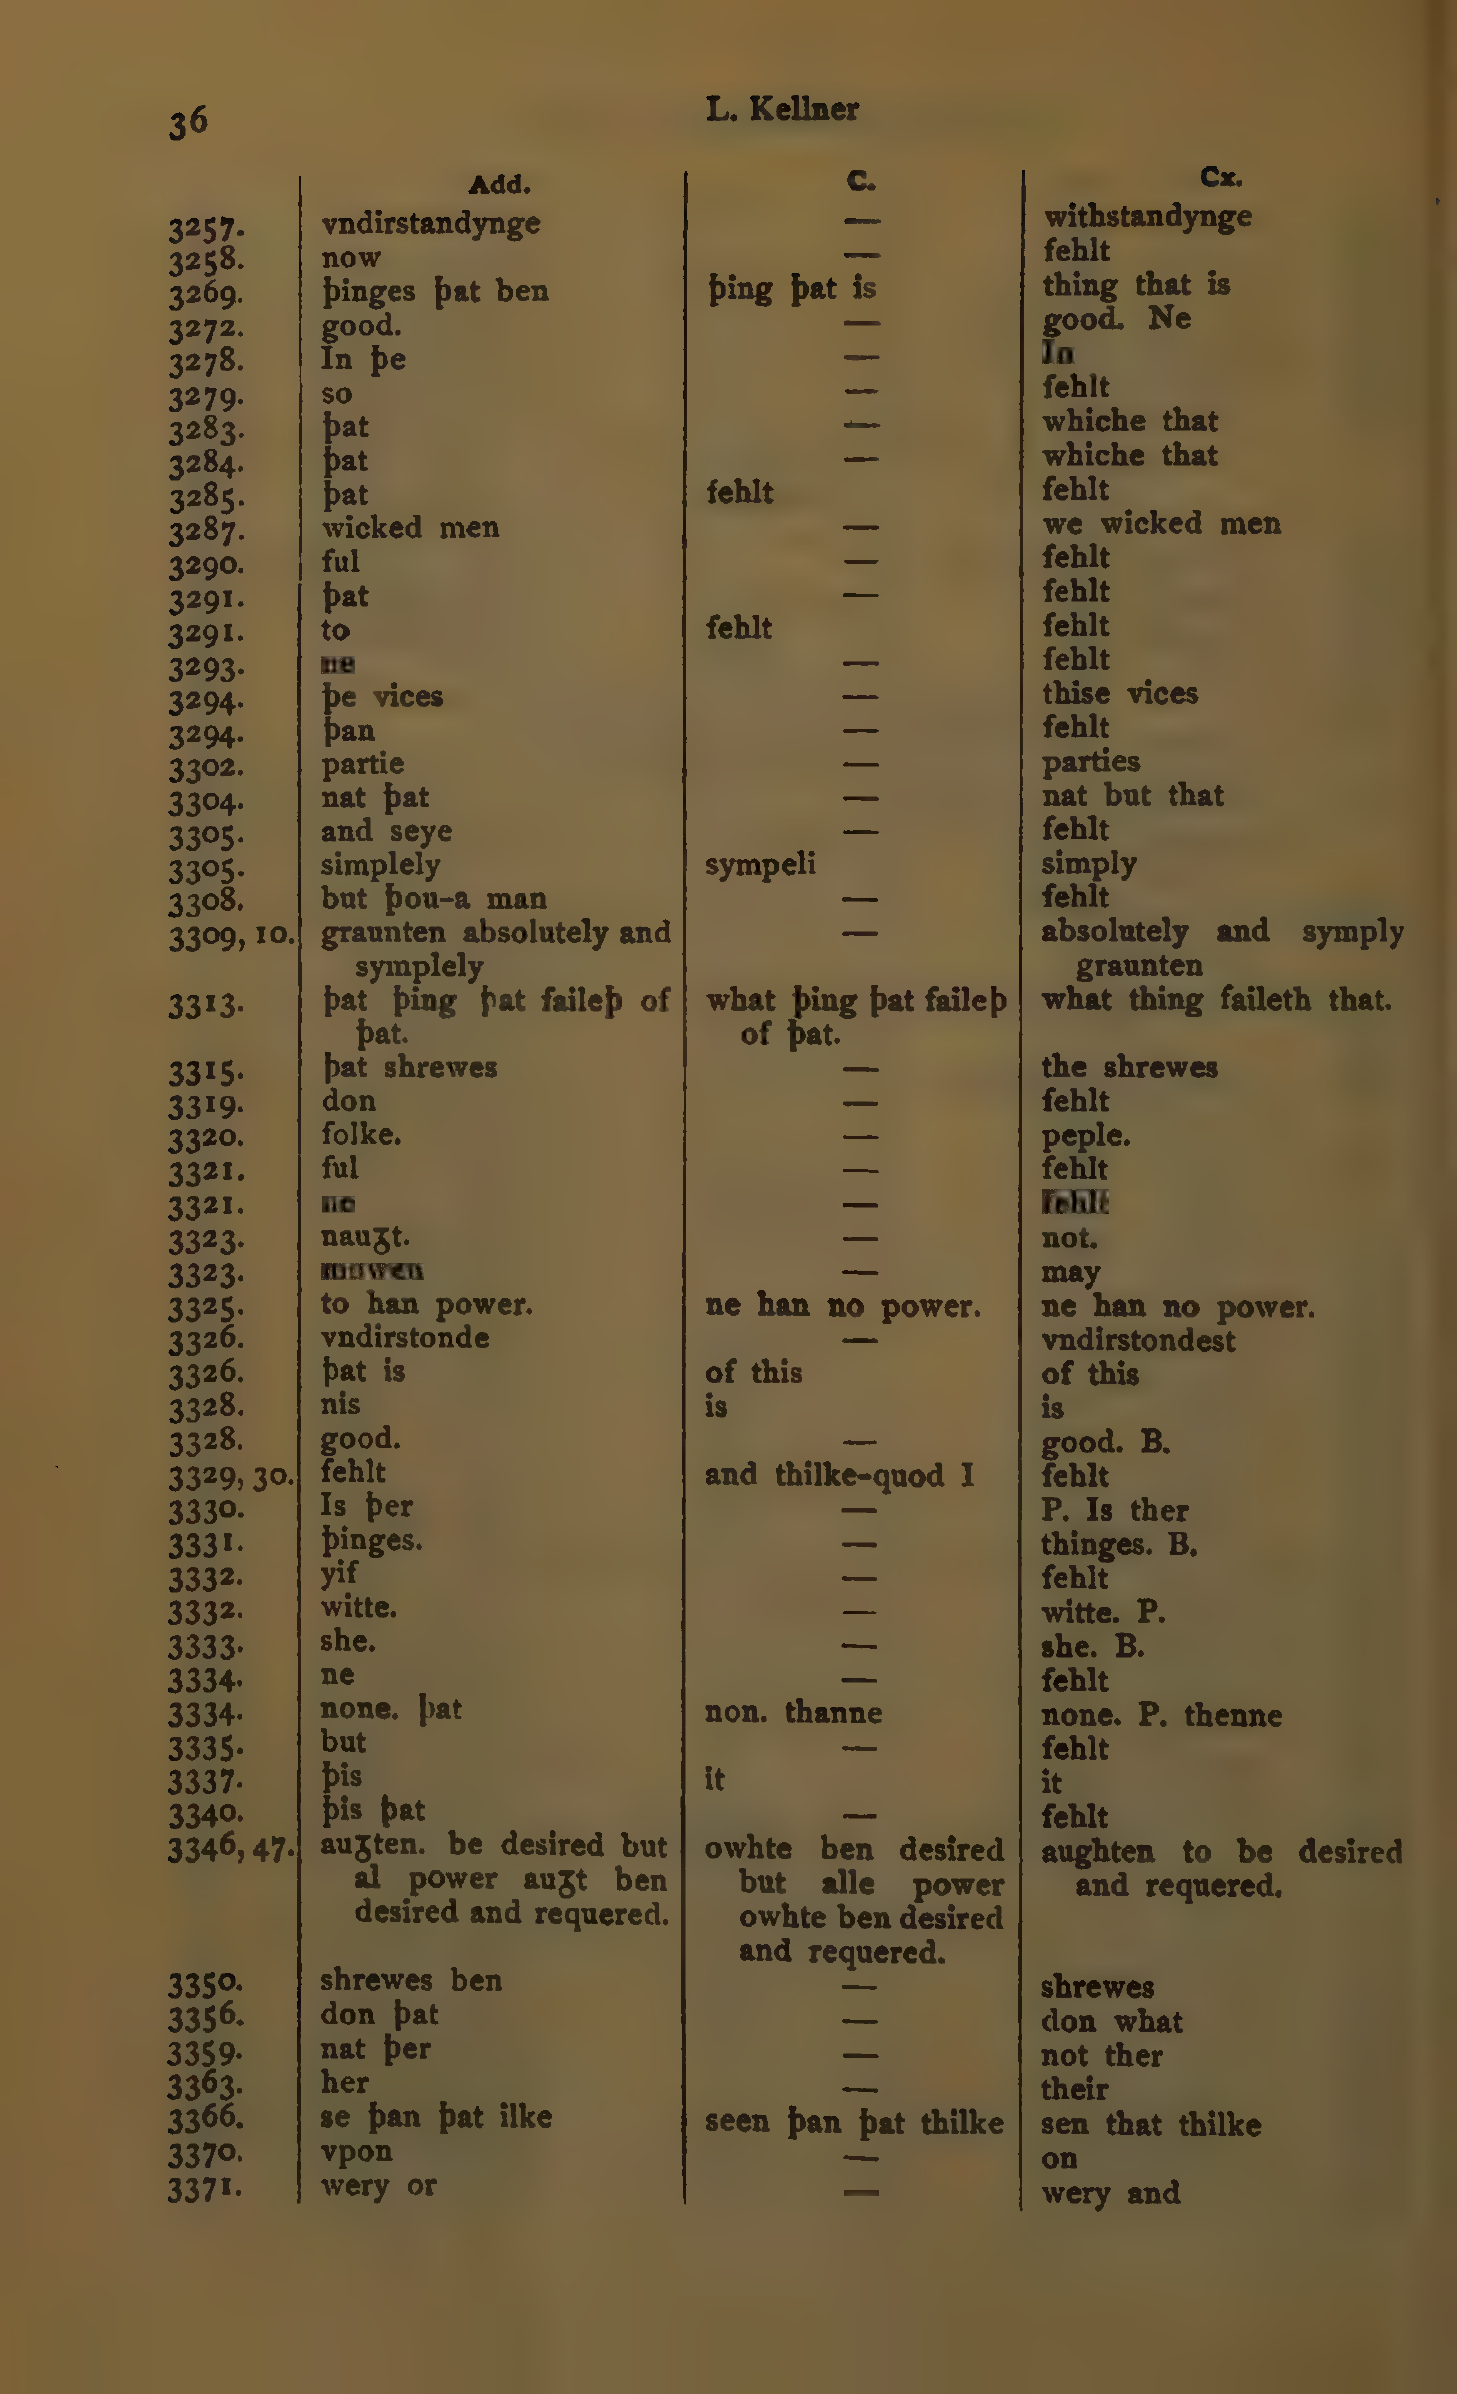 36
L. Kellner
Add. C. Cx.
3257. vndirstandynge — withstandynge
3258. now — fehlt
3269. þinges þat ben þing þat is thing that is
3272. good. — good. Ne
3278. In þe — In
3279. so — fehlt
3283. þat — whiche that
3284. þat — whiche that
3285. þat fehlt fehlt
3287. wicked men — we wicked men
3290. ful — fehlt
3291. þat — fehlt
3291. to fehlt fehlt
3293. ne — fehlt
3294. þe vices — thise vices
3294. þan — fehlt
3302. partie — parties
3304. nat þat — nat but that
3305. and seye — fehlt
3305. simplely sympeli simply
3308. but þou-a man — fehlt
3309, 10. graunten absolutely and — absolutely and symply
symplely graunten
3313. þat þing þat faileþ of what þing þat faileþ what thing faileth that.
þat. of þat.
3315. þat shrewes — the shrewes
3319. don — fehlt
3320. folke. — peple.
3321. ful — fehlt
3321. ne — fehlt
3323. nauȝt. — not.
3323. mowen — may
3325. to han power. ne han no power. ne han no power.
3326. vndirstonde — vndirstondest
3326. þat is of this of this
3328. nis is is
3328. good. — good. B.
3329, 30. fehlt and thilke-quod I fehlt
3330. Is þer — P. Is ther
3331. þinges. — thinges. B.
3332. yif — fehlt
3332. witte. — witte. P.
3333. she. — she. B.
3334. ne — fehlt
3334. none. þat non. thanne none. P. thenne
3335. but — fehlt
3337. þis it it
3340. þis þat — fehlt
3346, 47. auȝten. be desired but owhte ben desired aughten to be desired
al power auȝt ben but alle power and requered.
desired and requered. owhte ben desired
and requered.
3350. shrewes ben — shrewes
3356. don þat — don what
3359. nat þer — not ther
3363. her — their
3366. se þan þat ilke seen þan þat thilke sen that thilke
3370. vpon — on
3371. wery or — wery and